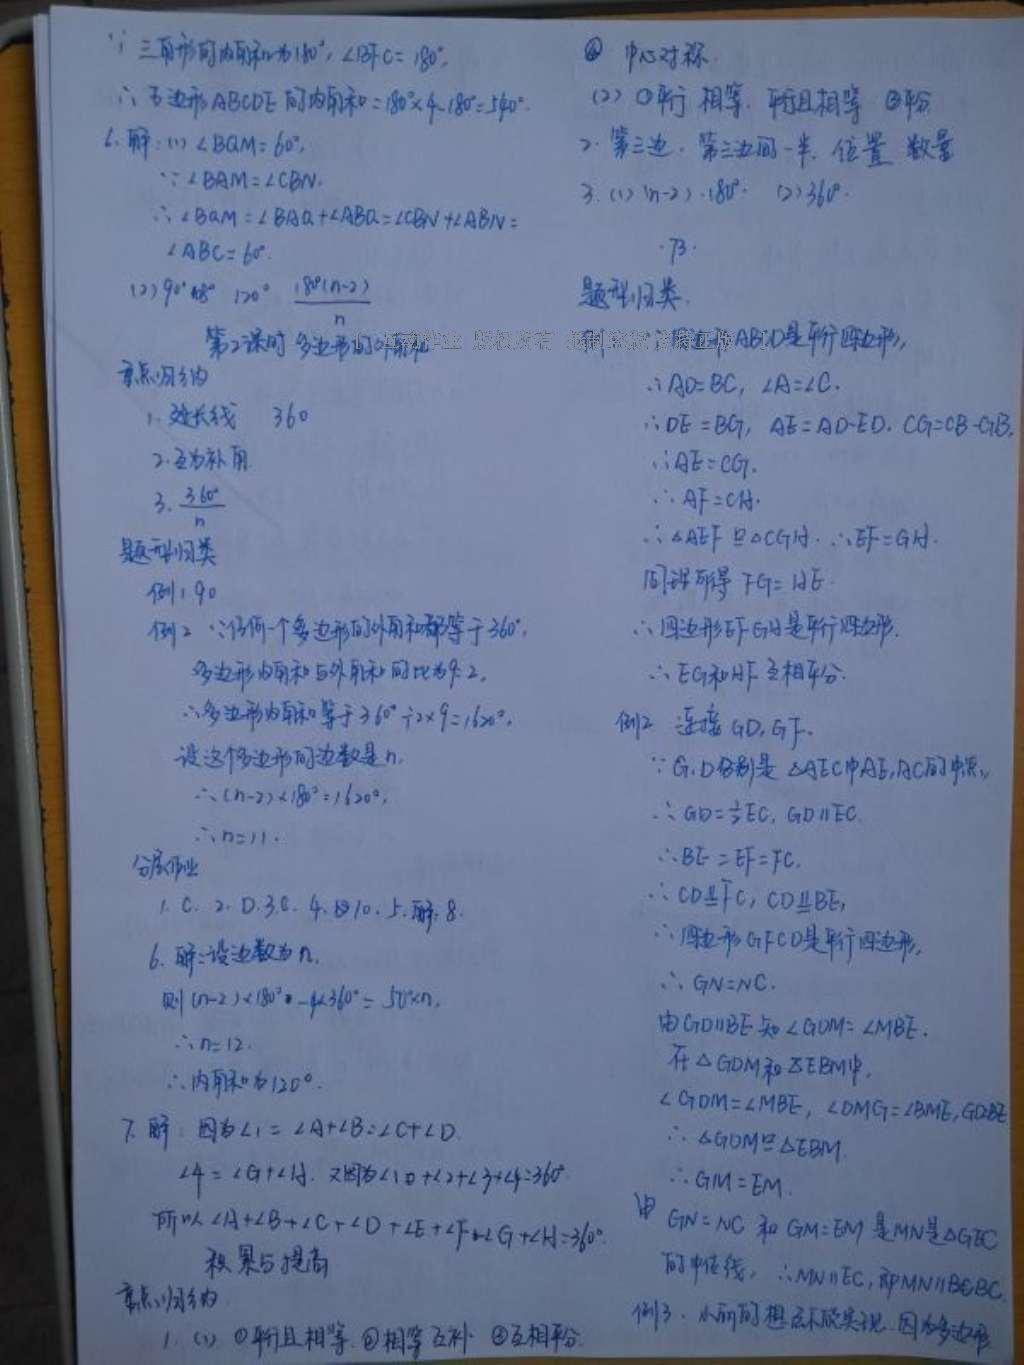 ∵三角形的内角和为180°,∠BFC=180°,
∴五边形ABCDE的内角和=180°×4-180°=540°.
6.解:(1)∠BQM=60°,
∵∠BAM=∠CBN.
∴∠BQM=∠BAQ+∠ABQ=∠CBN+∠ABN=
∠ABC=60°.
(2)90° 108° 120° 180°(n-2)/n
第2课时 多边形的外角和
重点归纳
1.延长线 360
2.互为补角
3. 360°/n
题型归类
例1 90
例2 ∵任何一个多边形的外角和都等于360°,
多边形内角和与外角和的比为9:2,
∴多边形内角和等于360°÷2×9=1620°,
设这个多边形的边数是n,
∴(n-2)×180°=1620°,
∴n=11.
分层作业
1.C. 2.D.3.C. 4. 10.5.解:8.
6.解:设边数为n,
则(n-2)×180°-4×360°=50×n,
∴n=12.
∴内角和为120°.
7.解:因为∠1=∠A+∠B=∠C+∠D.
∠4=∠G+∠H. 又因为∠1+∠2+∠3+∠4=360°
所以∠A+∠B+∠C+∠D+∠E+∠F+∠G+∠H=360°.
积累与提高
重点归纳
1.(1)①平行且相等.②相等 互补 ③互相平分
④ 中心对称.
(2)①平行 相等.平行且相等 ②平分
2.第三边.第三边的一半.位置 数量
3.(1)(n-2)·180°. (2)360°.
题型归类.
ABCD是平行四边形,
∴AD=BC,∠A=∠C.
∴DE=BG, AE=AD-ED. CG=CB-GB.
∴AE=CG.
∴AF=CH.
∴△AEF≌△CGH.∴EF=GH.
同理可得 FG=HE.
∴四边形EFGH是平行四边形.
∴EG和HF互相平分.
例2 连接GD,GF.
∵G.D分别是△AEC中AE,AC的中点,
∴GD=½EC, GD∥EC.
∴BE=EF=FC.
∴四边形GFCD是平行四边形,
∴GN=NC.
由GD∥BE知∠GDM=∠MBE.
在△GDM和△EBM中,
∠GDM=∠MBE, ∠DMG=∠BME,GD=BE
∴△GDM≌△EBM.
∴GM=EM.
由GN=NC和GM=EM是MN是△GEC
的中位线, ∴MN∥EC,即MN∥BC.
例3.小明的想法不能实现.因为多边形